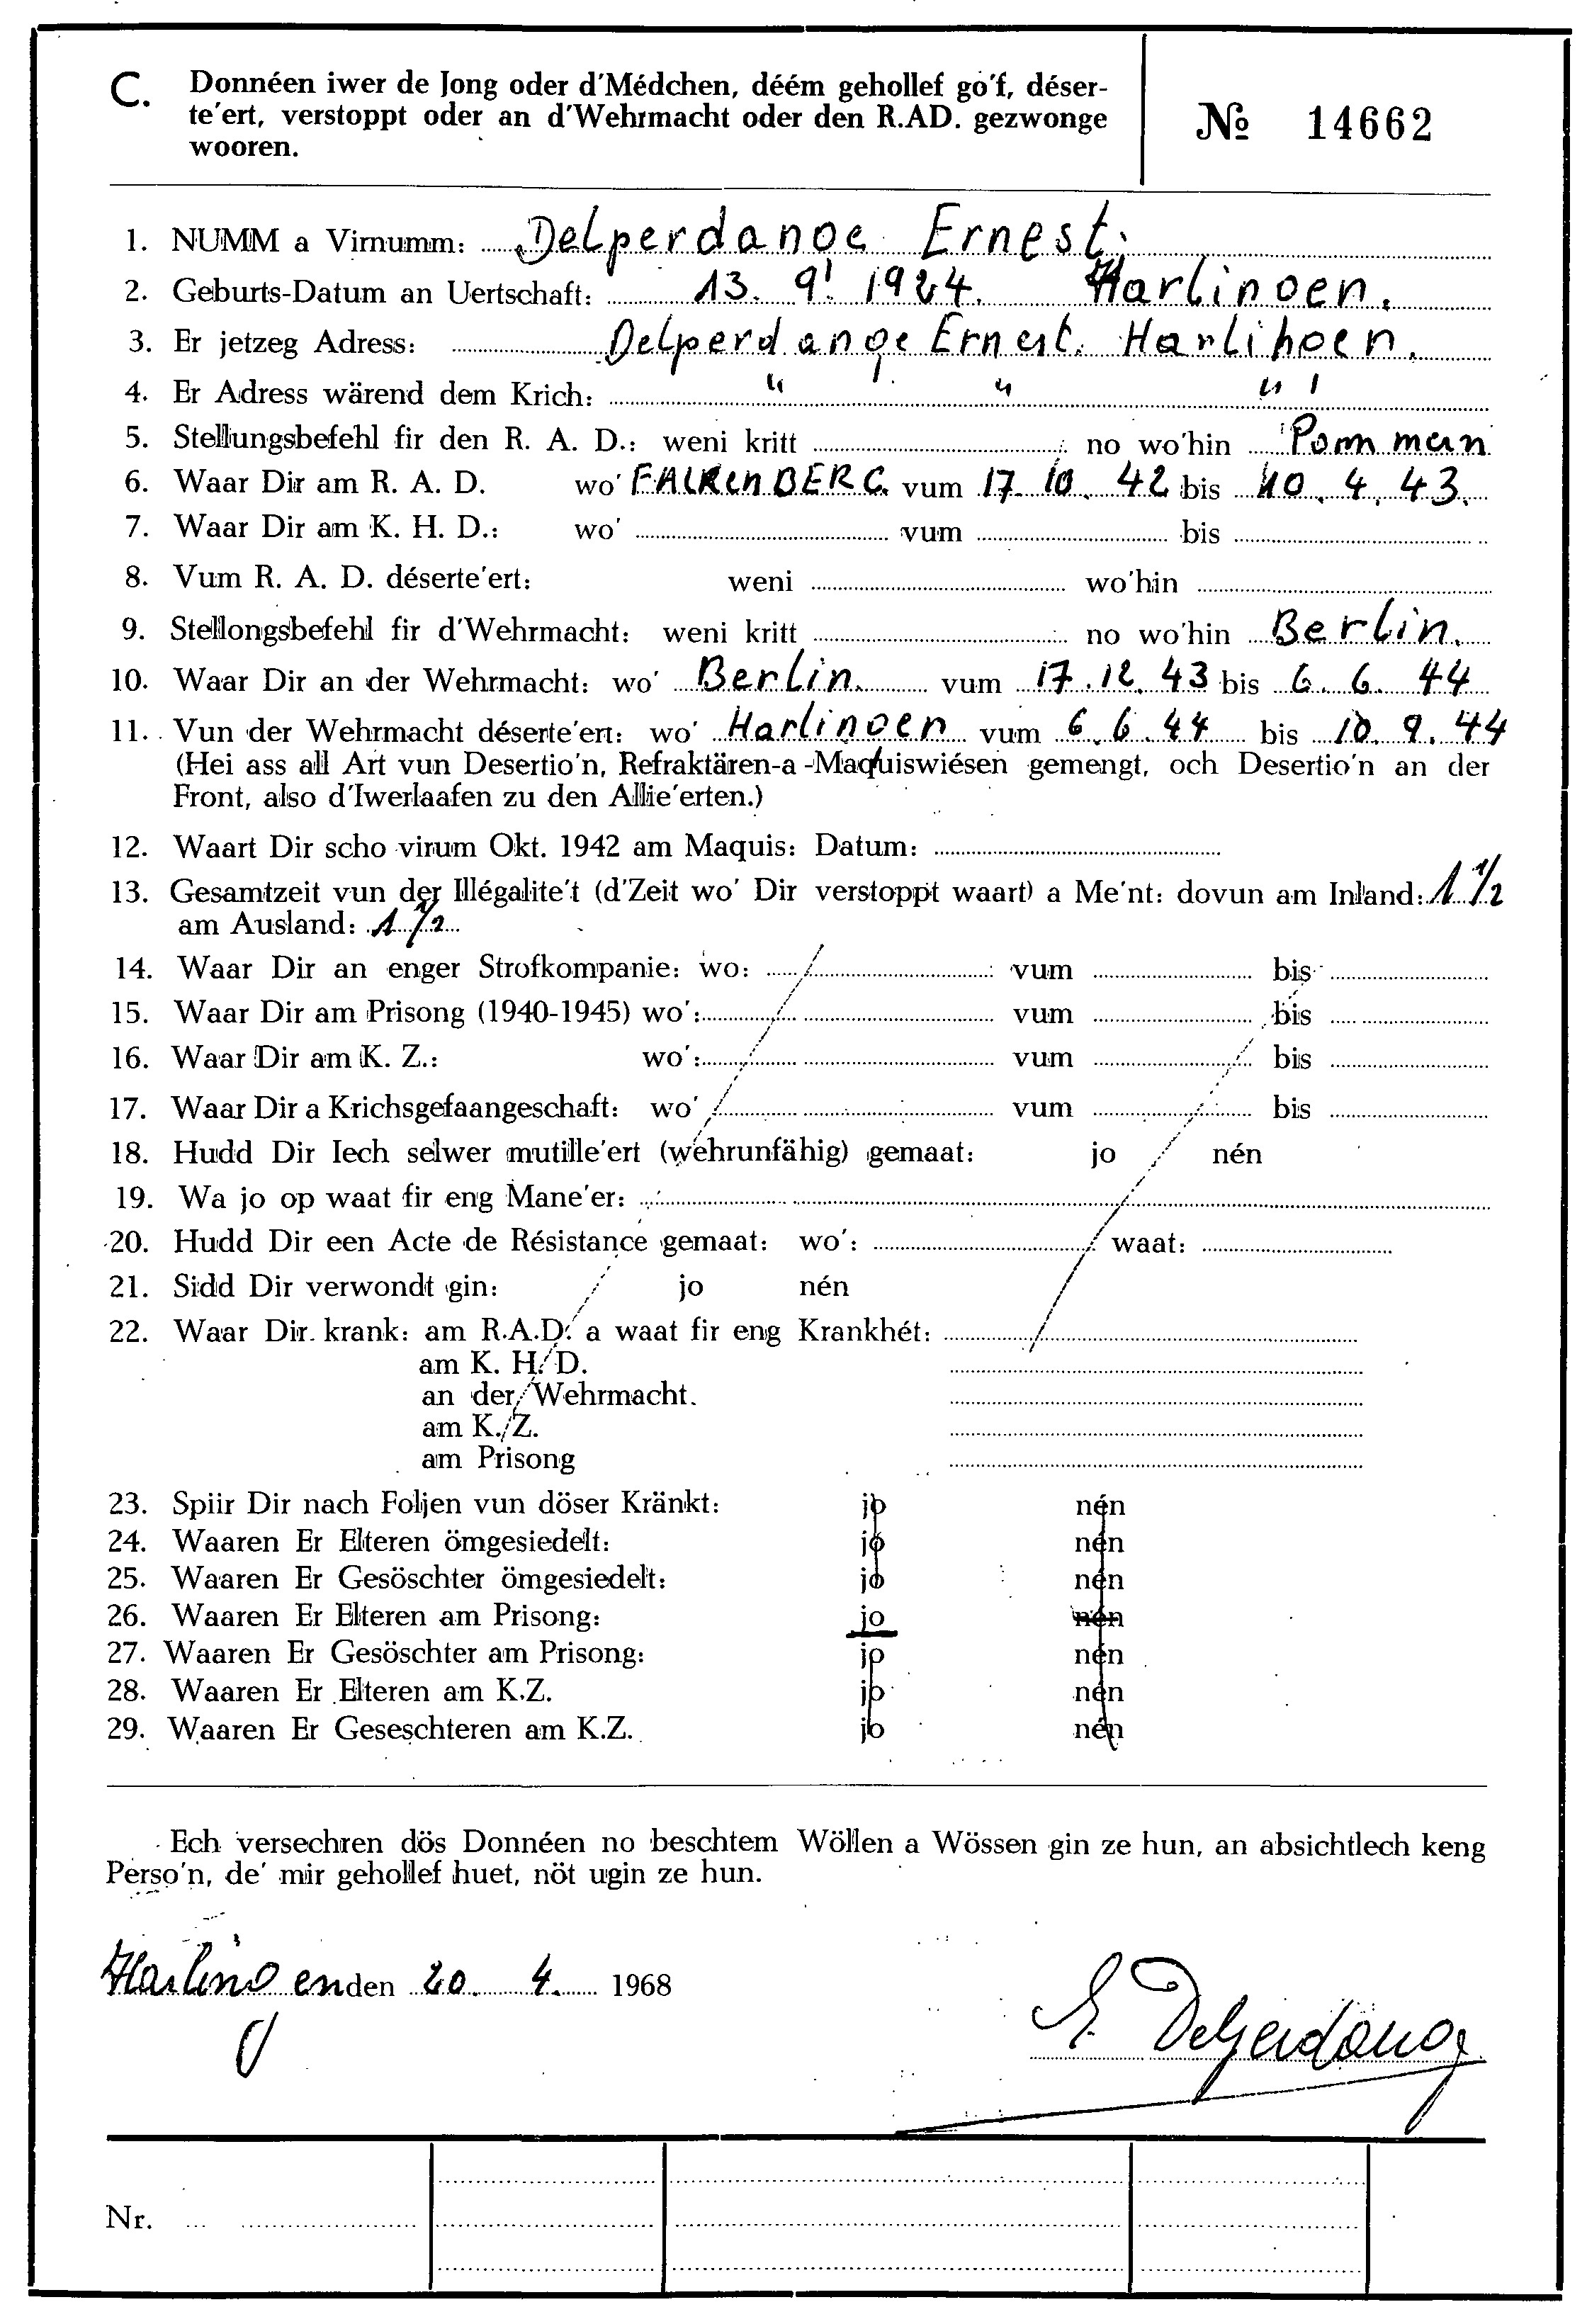 C. Donnéen iwer de Jong oder d'Médchen, déém gehollef go'f, déser-
te'ert, verstoppt oder an d'Wehrmacht oder den R.AD. gezwonge
wooren.
№ 14662
1. NUMM a Virnumm: Delperdange Ernest.
2. Geburts-Datum an Uertschaft: 13. 9. 1924. Harlingen.
3. Er jetzeg Adress: Delperdange Ernest. Harlingen.
4. Er Adress wärend dem Krich: " " "
5. Stellungsbefehl fir den R. A. D.: weni kritt no wo'hin Pommern
6. Waar Dir am R. A. D. wo' FALKENBERG. vum 17. 10. 42 bis 10. 4. 43.
7. Waar Dir am K. H. D.: wo' vum bis
8. Vum R. A. D. déserte'ert: weni wo'hin
9. Stellongsbefehl fir d'Wehrmacht: weni kritt no wo'hin Berlin.
10. Waar Dir an der Wehrmacht: wo' Berlin. vum 17. 12. 43 bis 6. 6. 44
11. Vun der Wehrmacht déserte'ert: wo' Harlingen vum 6. 6. 44 bis 10. 9. 44
(Hei ass all Art vun Desertio'n, Refraktären-a -Maquiswiésen gemengt, och Desertio'n an der
Front, also d'Iwerlaafen zu den Allie'erten.)
12. Waart Dir scho virum Okt. 1942 am Maquis: Datum:
13. Gesamtzeit vun der Illégalite't (d'Zeit wo' Dir verstoppt waart) a Me'nt: dovun am Inland: 1 1/2
am Ausland: 1 1/2
14. Waar Dir an enger Strofkompanie: wo: vum bis
15. Waar Dir am Prisong (1940-1945) wo': vum bis
16. Waar Dir am K. Z.: wo': vum bis
17. Waar Dir a Krichsgefaangeschaft: wo' vum bis
18. Hudd Dir Iech selwer mutille'ert (wehrunfähig) gemaat: jo nén
19. Wa jo op waat fir eng Mane'er:
20. Hudd Dir een Acte de Résistance gemaat: wo': waat:
21. Sidd Dir verwondt gin: jo nén
22. Waar Dir krank: am R.A.D. a waat fir eng Krankhét:
am K. H. D.
an der Wehrmacht.
am K. Z.
am Prisong
23. Spiir Dir nach Foljen vun döser Kränkt: jo nén
24. Waaren Er Elteren ömgesiedelt: jo nén
25. Waaren Er Gesöschter ömgesiedelt: jo nén
26. Waaren Er Elteren am Prisong: jo nén
27. Waaren Er Gesöschter am Prisong: jo nén
28. Waaren Er Elteren am K.Z. jo nén
29. Waaren Er Geseschteren am K.Z. jo nén
Ech versechren dös Donnéen no beschtem Wöllen a Wössen gin ze hun, an absichtlech keng
Perso'n, de' mir gehollef huet, nöt ugin ze hun.
Harlingen den 20. 4. 1968
E. Delperdange
Nr.